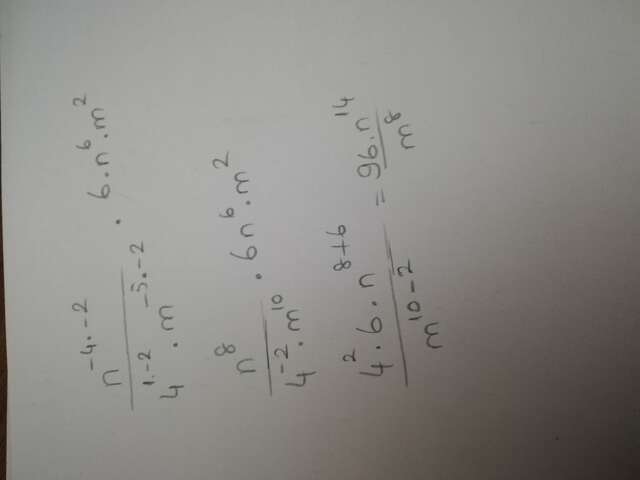 n^{-4.-2} / 4^{1.-2} . m^{-5.-2} . 6.n^6.m^2
n^8 / 4^{-2}.m^{10} . 6n^6.m^2
4^2.6.n^{8+6} / m^{10-2} = 96.n^{14} / m^8